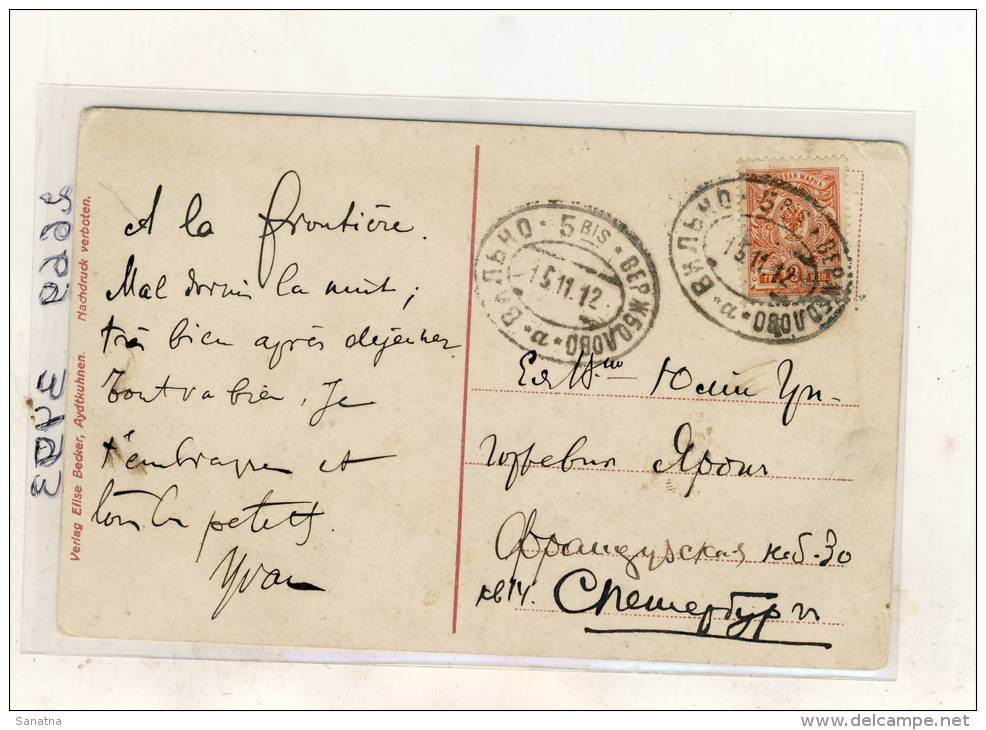 A la frontière.
Mal dormi la nuit;
très bien après déjeuner
Tout va bien. Je
t'embrasse et
tous les petits.
Yvan
Verlag Elise Becker, Aydtkuhnen. Nachdruck verboten.
ВИЛЬНО * 5 BIS * ВЕРЖБОЛОВО * а *
15.11.12
ВИЛЬНО * 5 BIS * ВЕРЖБОЛОВО * а *
15.11.12
ВАЯ МАРКА
Юліи Гри-
горьевнѣ
Французская наб. 30
кв 14. СПетербургъ
Sanatna
www.delcampe.net